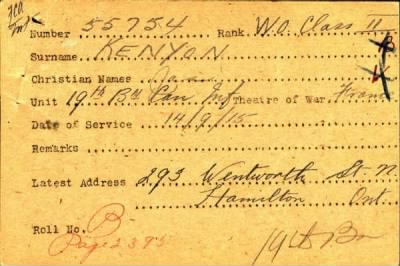 Number 55754 Rank W.O. Class II
Surname KENYON
Christian Names
Unit 19th Bn Can Inf Theatre of War France
Date of Service 14/9/15
Remarks
Latest Address 293 Wentworth St. N.
Hamilton Ont
Roll No. B
Page 2395
19th Bn